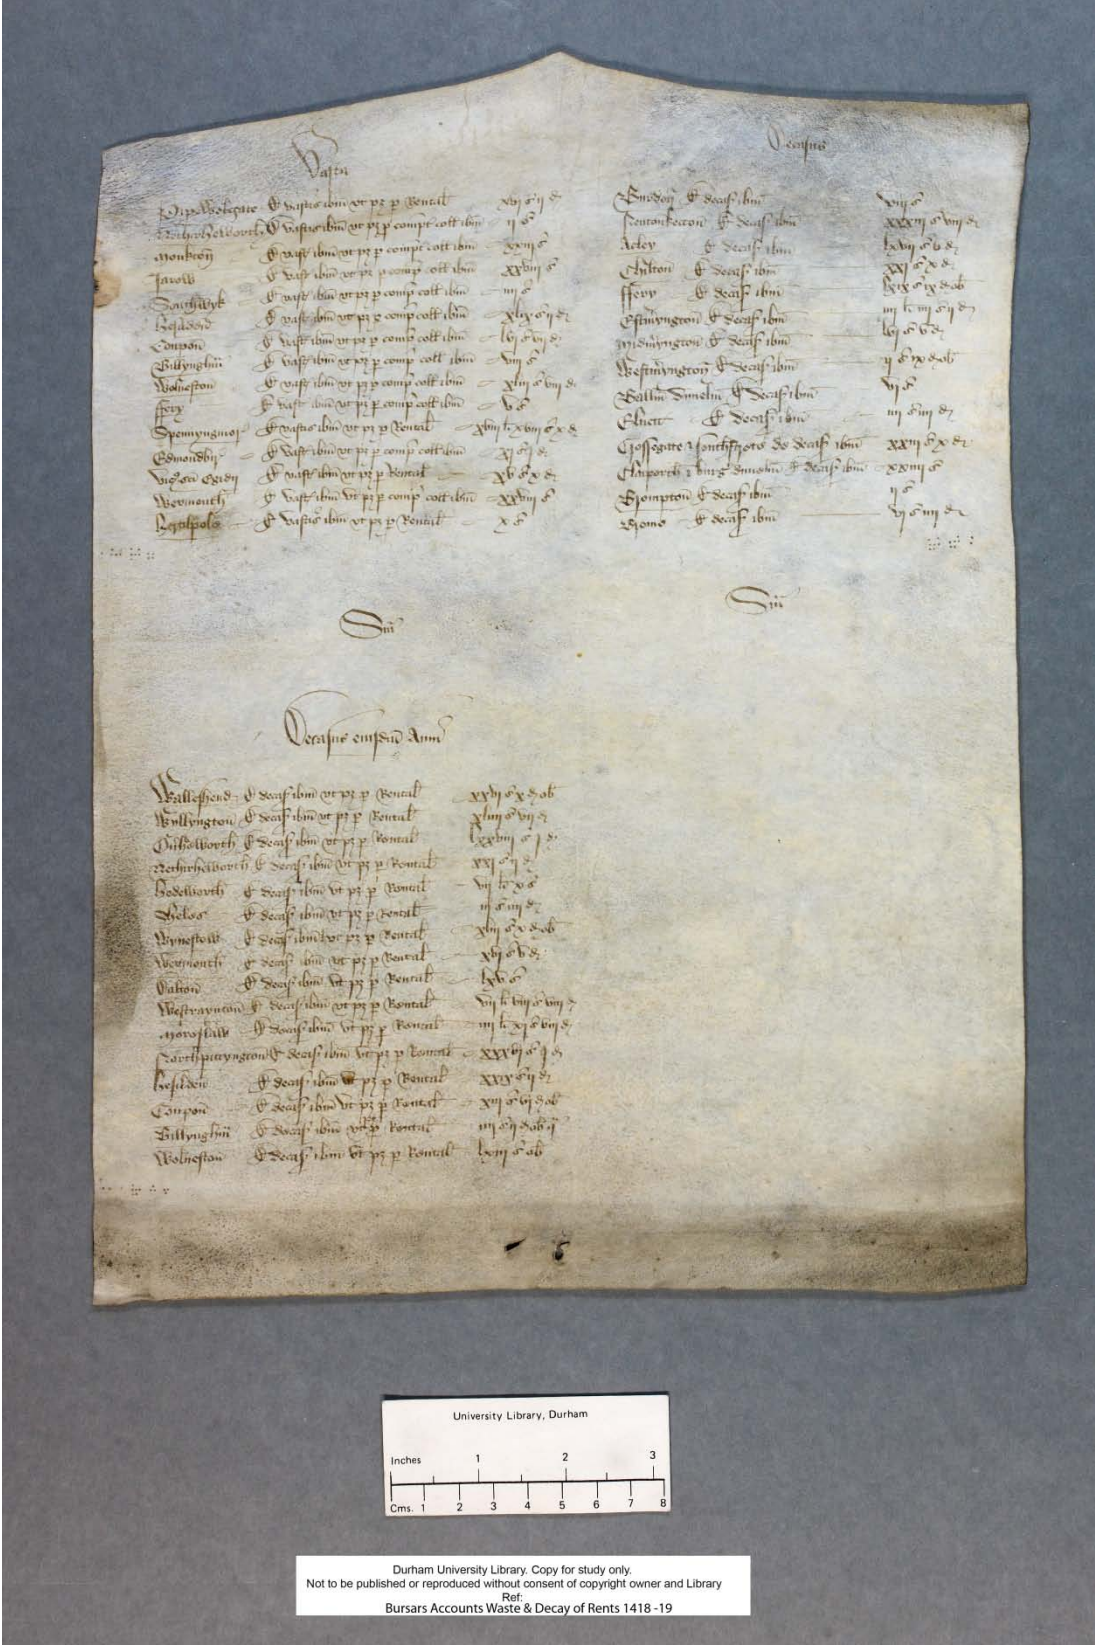 Vasta
Wobzate Et vastis ibm vt pz p Rental xvi s ii d
Nethirheworth Et vastis ibm vt pz p compt coll ibm ii s
Monkton Et vast ibm vt pz p compt coll ibm xxii s
Jarow Et vast ibm vt pz p comp coll ibm xxviii s
Southwyk Et vast ibm vt pz p comp coll ibm iiii s
Hesilden Et vast ibm vt pz p comp coll ibm xlix s ii d
Coupon Et vast ibm vt pz p comp coll ibm lvi s vii d
Billynghm Et vast ibm vt pz p comp coll ibm viii s
Wolueston Et vast ibm vt pz p comp coll ibm xliii s viii d
ffery Et vast ibm vt pz p comp coll ibm v s
Spennyngmor Et vastis ibm vt pz p Rental xviii li xviii s x d
Edmondbir Et vast ibm vt pz p comp coll ibm xi s i d
Vic sci Egidij Et vast ibm vt pz p Rental xv s x d
Wermouth Et vast ibm vt pz p comp coll ibm xxviii s
Hertilpole Et vastis ibm vt pz p Rental x s
Sm
Decasus
Burdon Et decas ibm xiii s
Newtonketton Et decas ibm xxxiii s viii d
Acley Et decas ibm lxvii s v d
Chilton Et decas ibm xxi s x d
ffery Et decas ibm lxix s ix d ob
Estmyngton Et decas ibm iiii li iiii s ii d
Midmyngton Et decas ibm lvi s v d
Westmyngton Et decas ibm ii s ix d ob
Ballm dunelm Et decas ibm vi s
Eluett Et decas ibm iiii s iiii d
Crossegate & southstrete de decas ibm xxiii s x d
Clayporth & burg dunelm Et decas ibm xxiiii s
Brompton Et decas ibm ii s
Brome Et decas ibm vi s iiii d
Sm
Decasus eiusdm Anni
Walleshend Et decas ibm vt pz p Rental xxvi s x d ob
Wyllyngton Et decas ibm vt pz p Rental xliiii s vii d
Ouheworth Et decas ibm vt pz p Rental lxxviii s i d
Nethirheworth Et decas ibm vt pz p Rental xxi s ii d
Hedeworth Et decas ibm vt pz p Rental vii li x s
Sheles Et decas ibm vt pz p Rental iii s iiii d
Wyuestow Et decas ibm vt pz p Rental xliii s x d ob
Wermouth Et decas ibm vt pz p Rental xvi s v d
Dalton Et decas ibm vt pz p Rental lxv s
Westraynton Et decas ibm vt pz p Rental vii li viii s viii d
Moreslaw Et decas ibm vt pz p Rental iiii li xi s viii d
Northpittyngton Et decas ibm vt pz p Rental xxxvi s i d
Hesilden Et decas ibm vt pz p Rental xxix s ii d
Coupon Et decas ibm vt pz p Rental xiii s vi d ob
Billynghm Et decas ibm vt pz p Rental iiii s ii d ob q
Wolueston Et decas ibm vt pz p Rental lxiii s ob
University Library, Durham
Inches 1 2 3
Cms. 1 2 3 4 5 6 7 8
Durham University Library. Copy for study only.
Not to be published or reproduced without consent of copyright owner and Library
Ref:
Bursars Accounts Waste & Decay of Rents 1418 -19